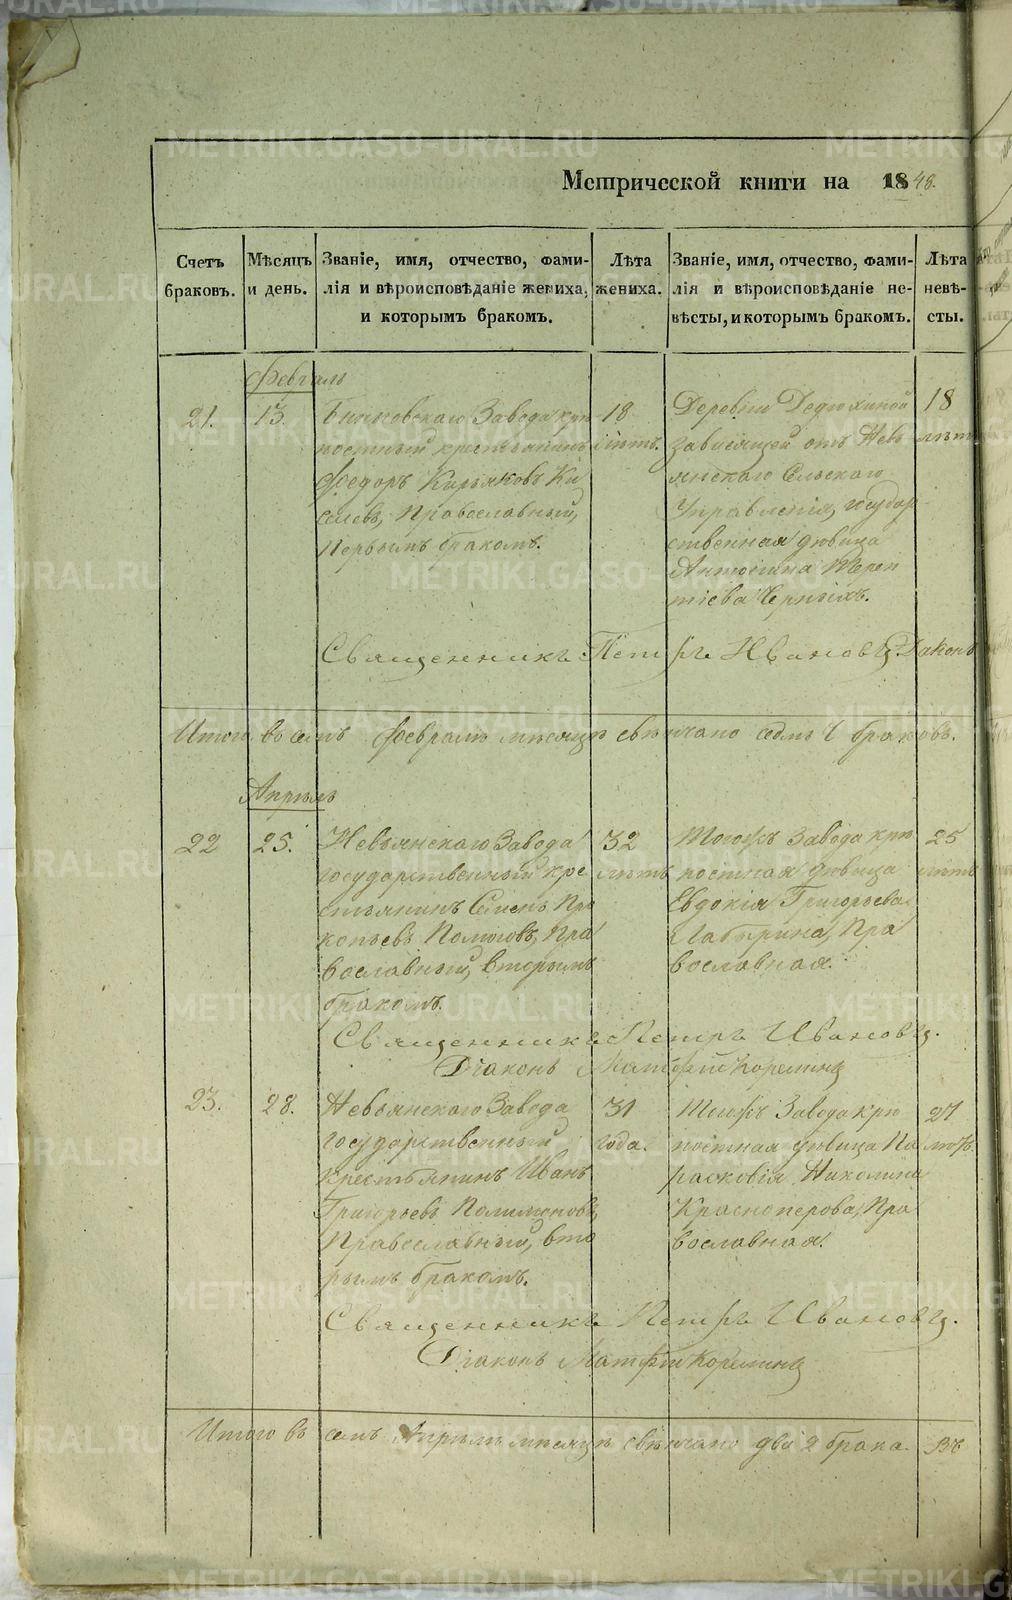 Метрической книги на 1848.
Счетъ браковъ.
Мѣсяцъ и день.
Званіе, имя, отчество, фами-
лія и вѣроисповѣданіе жениха,
и которымъ бракомъ.
Лѣта жениха.
Званіе, имя, отчество, фами-
лія и вѣроисповѣданіе не-
вѣсты, и которымъ бракомъ.
Лѣта невѣ-
сты.
Февраль
21.
13.
Быньковскаго Завода крѣ
постный крестьянинъ
Федоръ Кирьяковъ Ки
селевъ, Православный,
Первымъ бракомъ.
18
лѣтъ.
Деревни Дедюхиной
зависящей отъ Невь
янскаго Сельскаго
Управленія, государ-
ственная дѣвица
Антонина Терен
тіева Черныхъ.
18
лѣтъ
Священникъ Петръ Ивановъ. Діаконъ
Итого въ семъ Февралѣ мѣсяцѣ свѣнчано браковъ.
Апрѣль
22
25.
Невьянскаго Завода
государственный кре
стьянинъ Семенъ Про
копьевъ Полуговъ, Пра
вославный, вторымъ
бракомъ.
32
лѣтъ
Тогожъ Завода крѣ
постная дѣвица
Евдокія Григорьева
Лабырина, Пра
вославная.
25
лѣтъ
Священникъ Петръ Ивановъ.
Діаконъ Матфій Корелинъ
23.
28.
Невьянскаго Завода
государственный
крестьянинъ Иванъ
Григорьевъ Полимоновъ,
Православный, вто
рымъ бракомъ.
31
года.
Тогожъ Завода крѣ
постная дѣвица Па
расковія Николина
Красноперова, Пра
вославная.
27
лѣтъ.
Священникъ Петръ Ивановъ.
Діаконъ Матфій Корелинъ
Итого въ семъ Апрѣлѣ мѣсяцѣ свѣнчано два 2 брака. Въ
METRIKI.GASO-URAL.RU